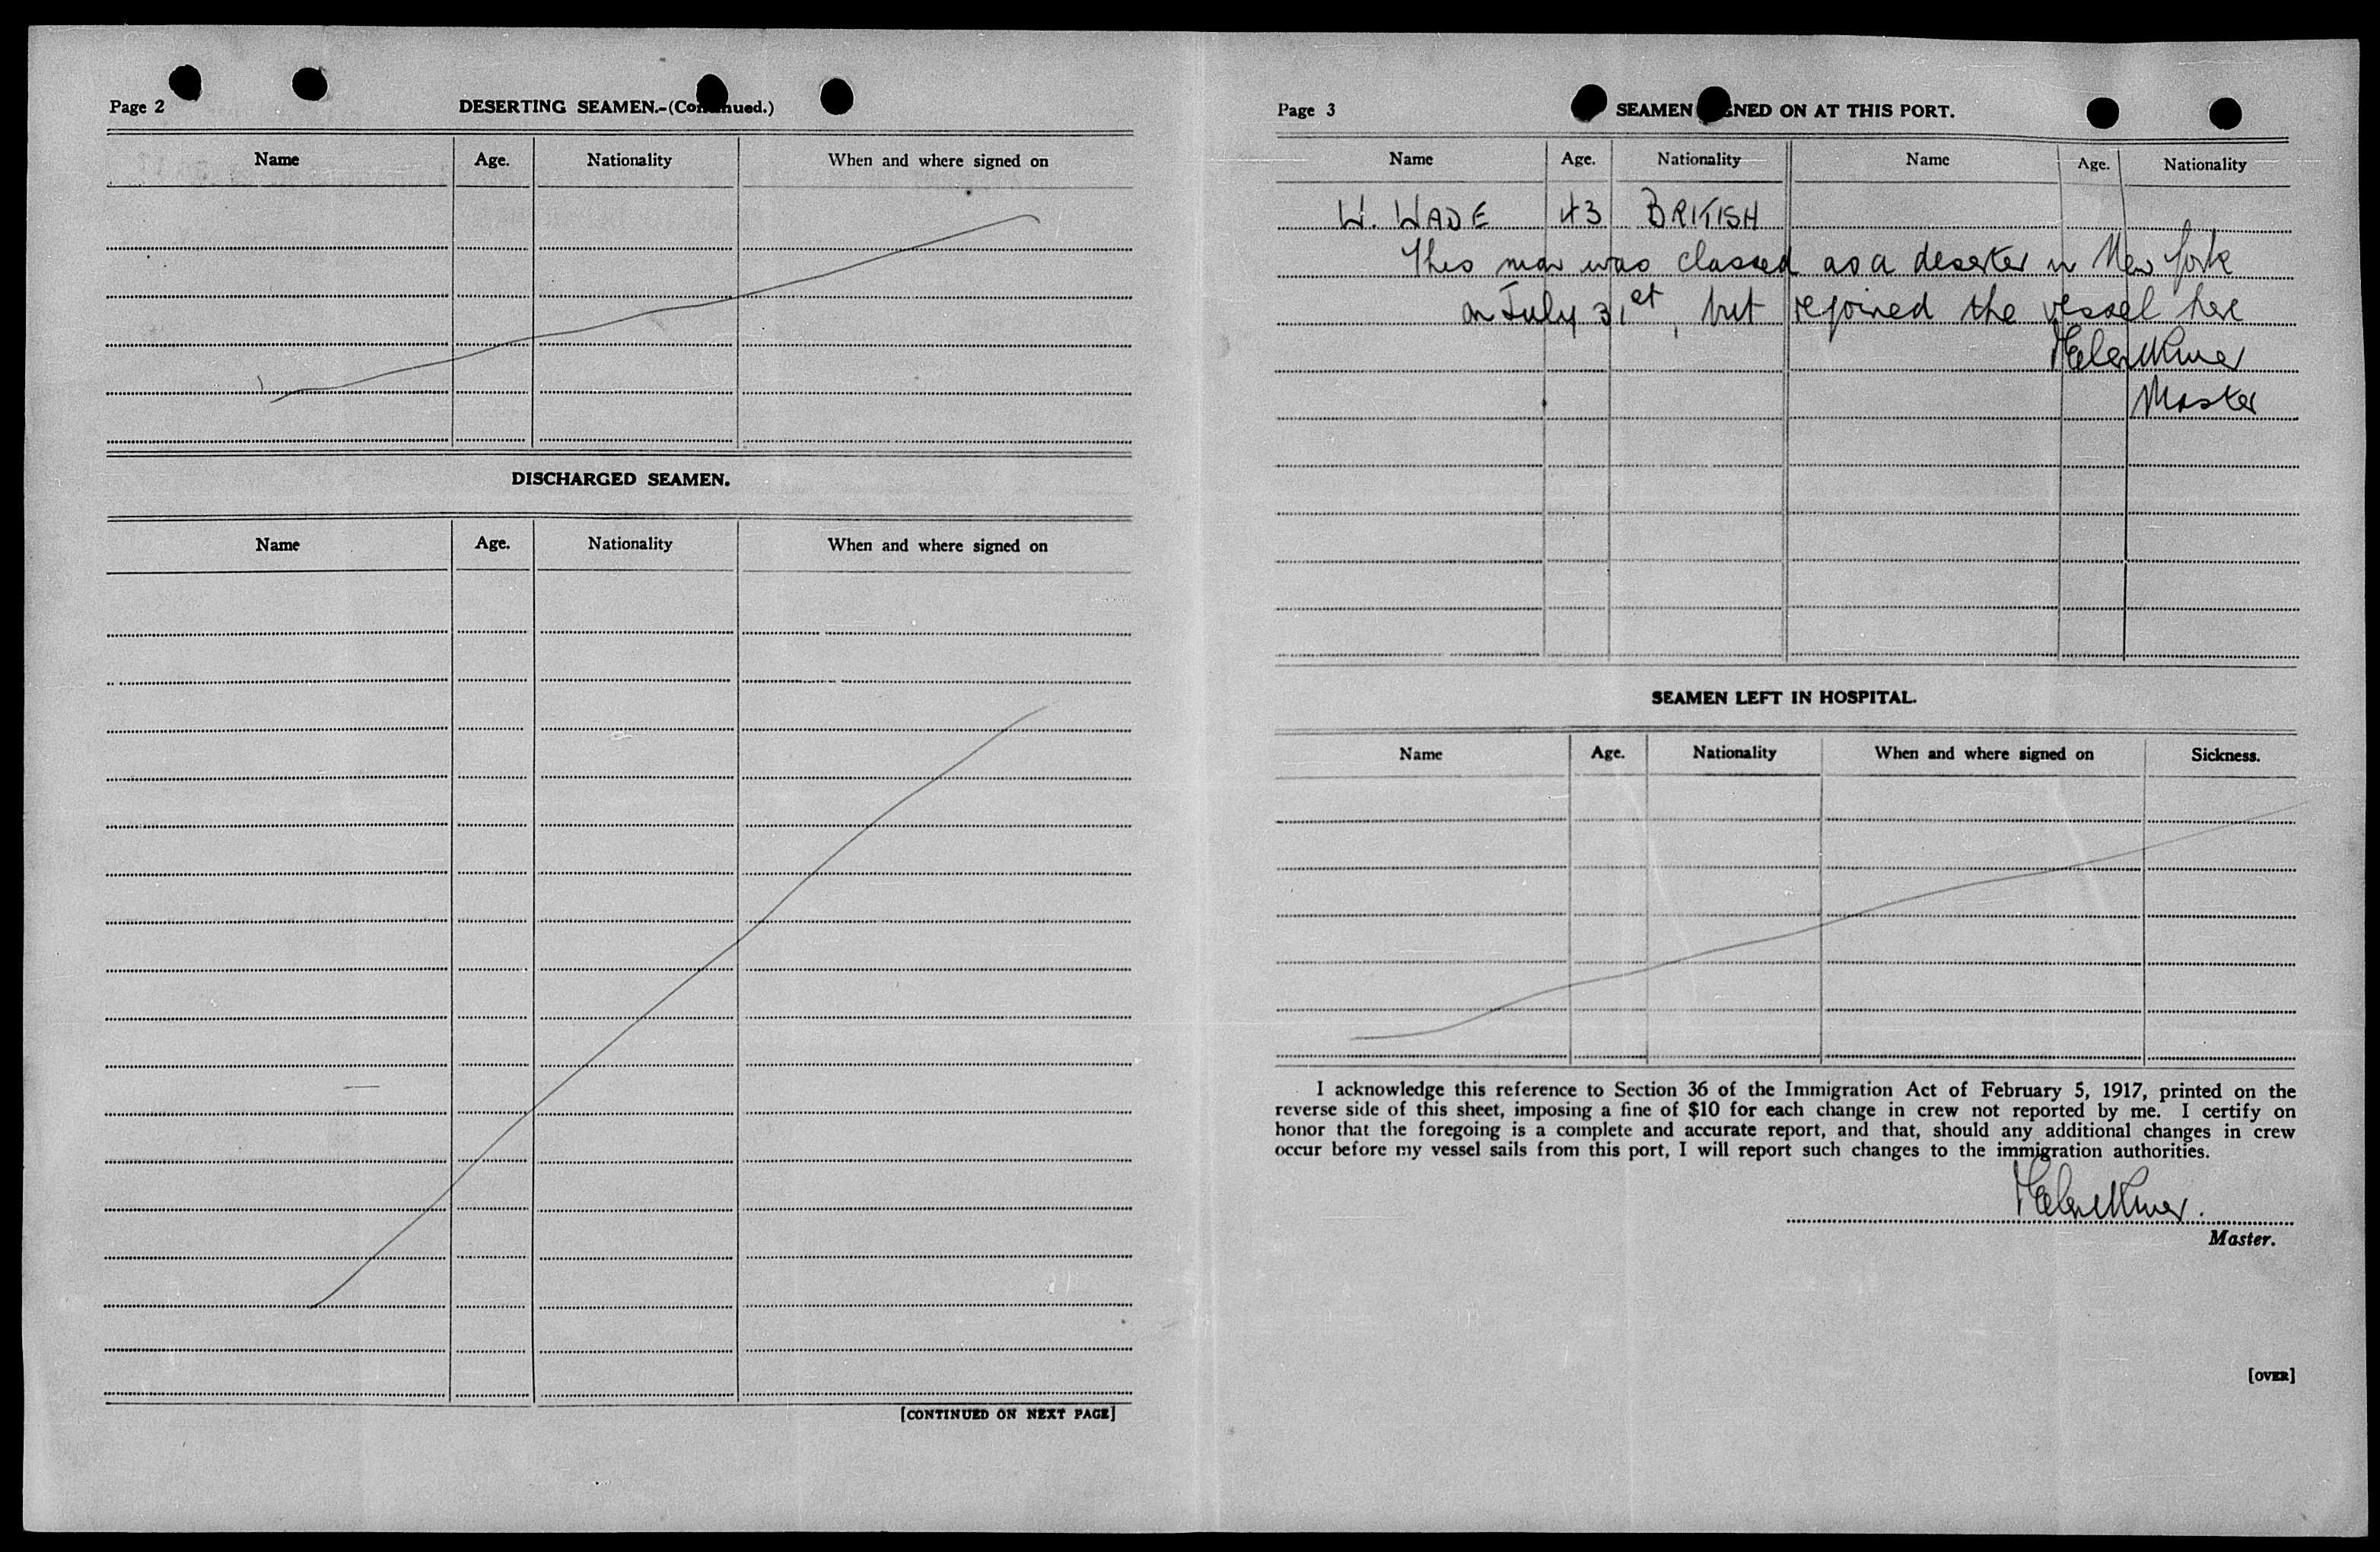 Page 2
DESERTING SEAMEN.-(Continued.)
Name Age. Nationality When and where signed on
DISCHARGED SEAMEN.
Name Age. Nationality When and where signed on
[CONTINUED ON NEXT PAGE]
Page 3
SEAMEN SIGNED ON AT THIS PORT.
Name Age. Nationality Name Age. Nationality
W. WADE 43 BRITISH
This man was classed as a deserter in New York
on July 31st, but rejoined the vessel here
Master
SEAMEN LEFT IN HOSPITAL.
Name Age. Nationality When and where signed on Sickness.
I acknowledge this reference to Section 36 of the Immigration Act of February 5, 1917, printed on the
reverse side of this sheet, imposing a fine of $10 for each change in crew not reported by me. I certify on
honor that the foregoing is a complete and accurate report, and that, should any additional changes in crew
occur before my vessel sails from this port, I will report such changes to the immigration authorities.
Master.
[OVER]